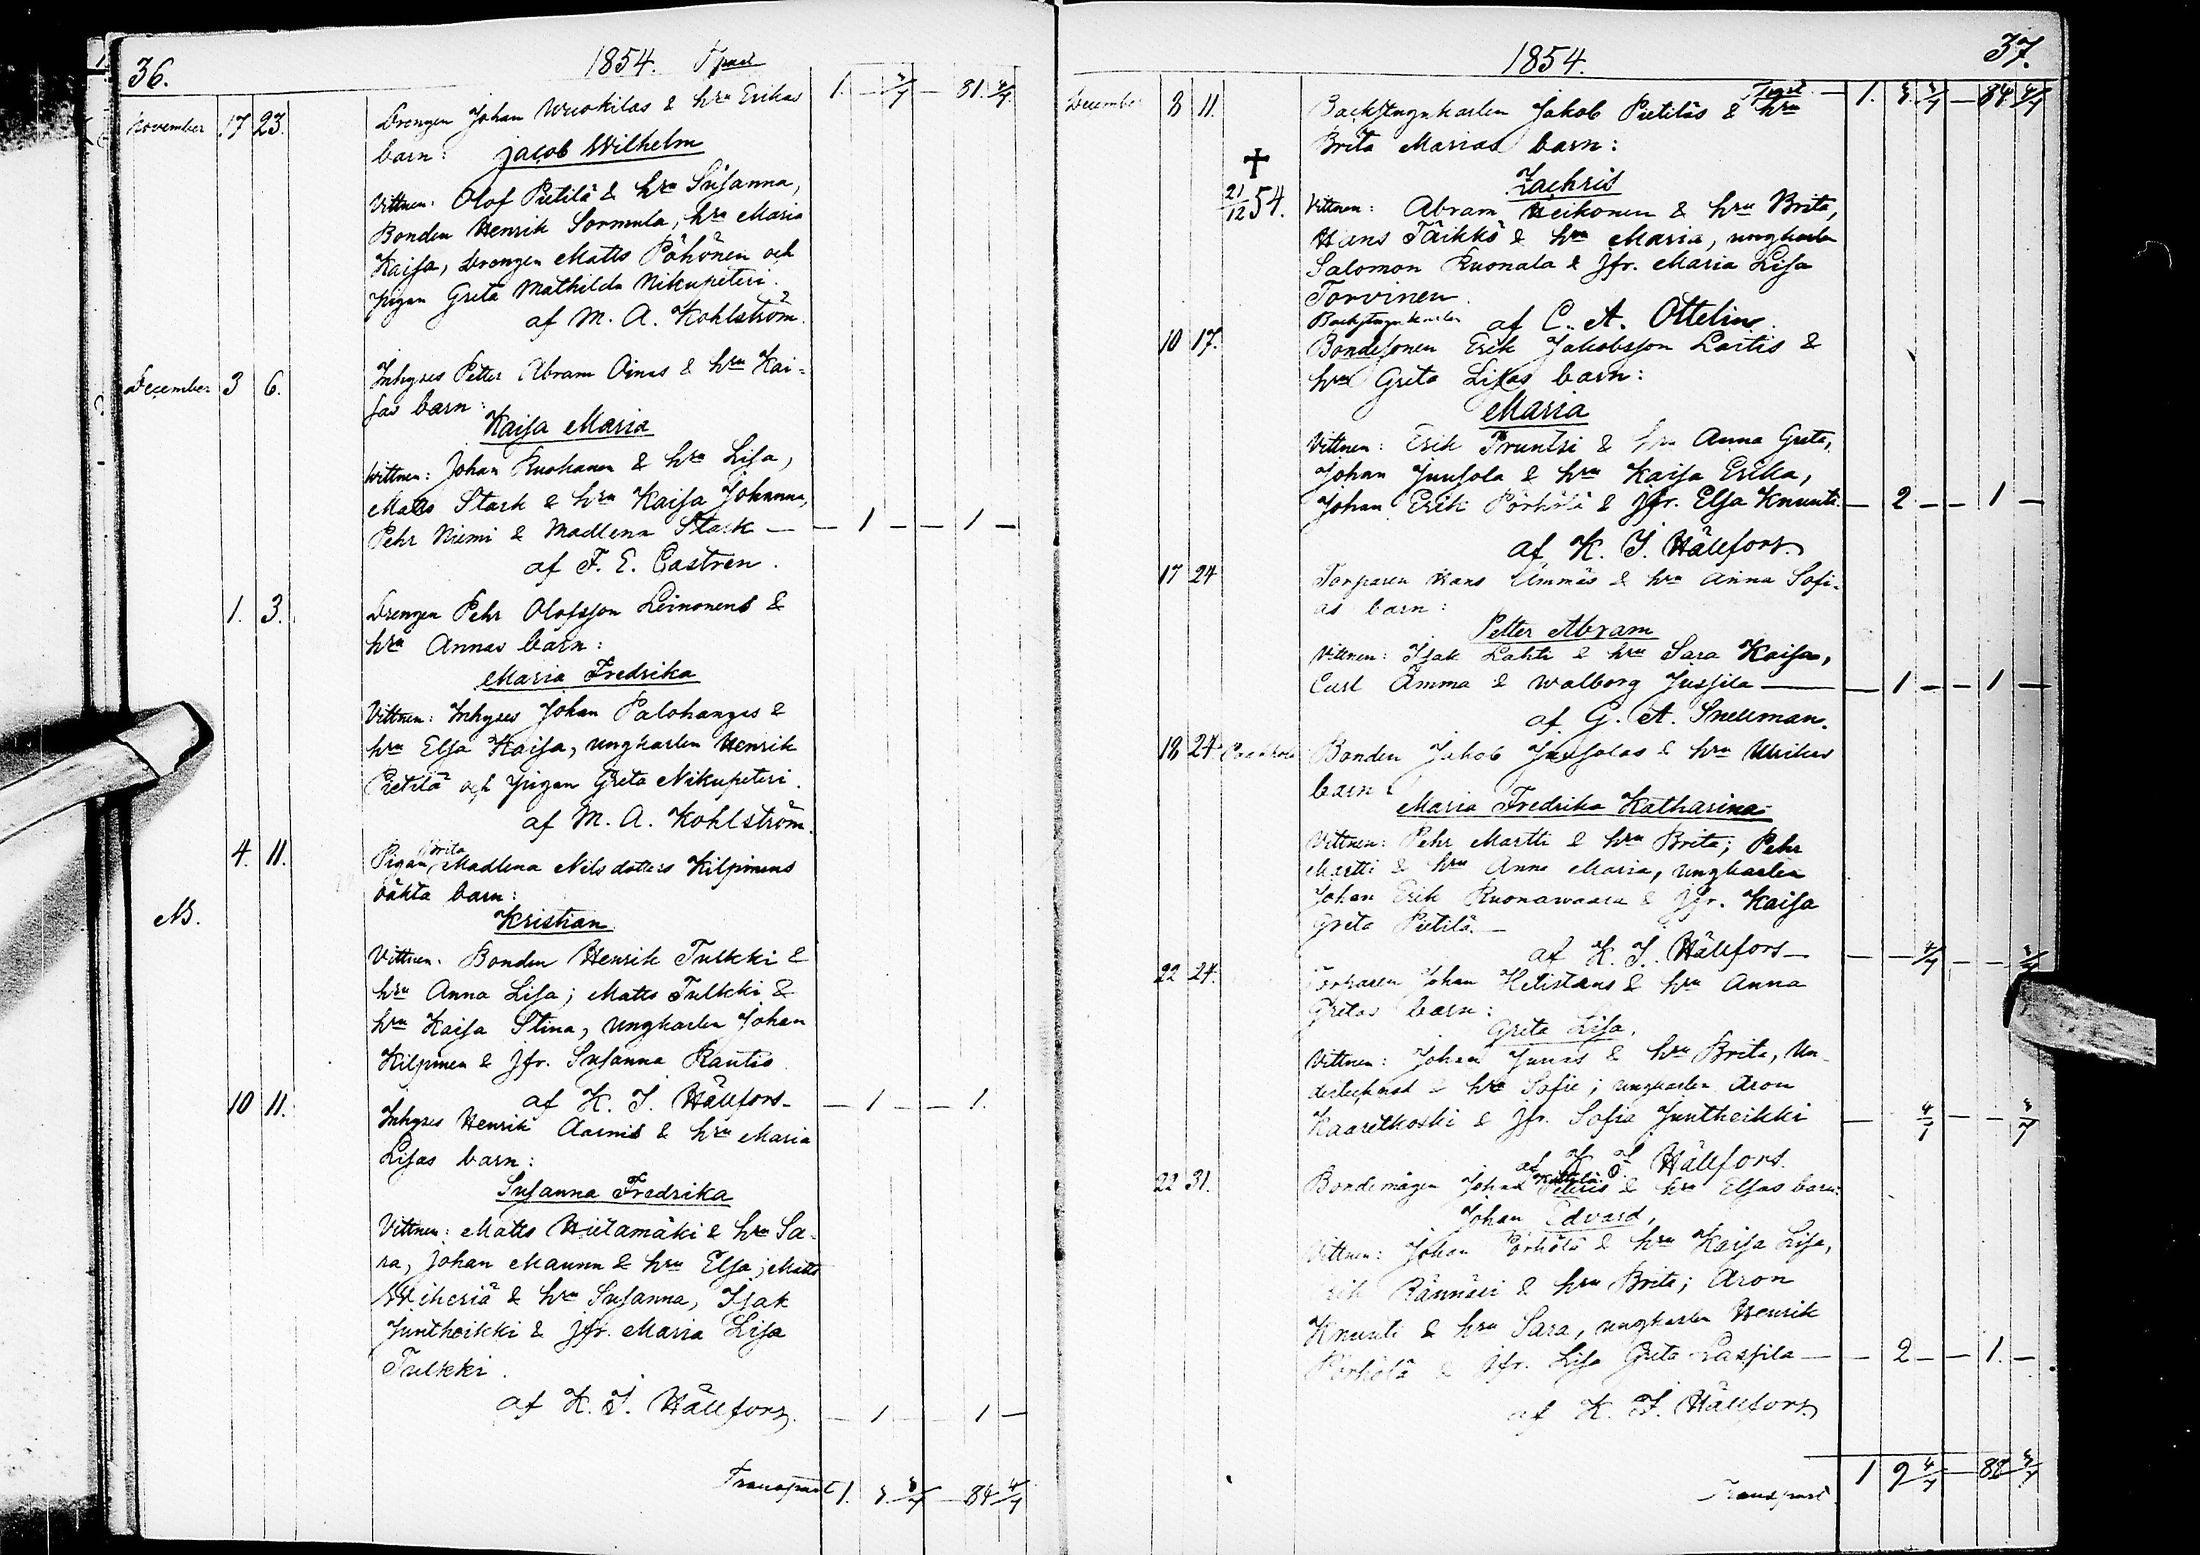 36.
1854. Tpart
1. — 3/7 — 81. 4/7
November 17 23. Drengen Johan Wuokilas & hru Erikas
barn: Jacob Wilhelm
Vittnen: Olof Pietilä & hru Susanna,
Bonden Henrik Sormula, hru Maria
Kaisa, Drengen Matts Pöhönen och
pigan Greta Mathilda Nikupeteri.
af M. A. Kohlström.
December 3 6. Inhyses Petter Abram Oinas & hru Kai-
sas barn:
Kaisa Maria
Vittnen: Johan Ruokanen & hru Lisa,
Matts Stark & hru Kaisa Johanna,
Pehr Niemi & Madlena Stark — — 1 — — 1 —
af F. E. Castren.
1. 3. Drengen Pehr Olofsson Leinonens &
hru Annas barn:
Maria Fredrika
Vittnen: Inhyses Johan Palohanges &
hru Elsa Kaisa, ungkarlen Henrik
Pietilä och pigan Greta Nikupeteri.
af M. A. Kohlström.
4. 11. Pigan Brita Madlena Nilsdotters Kilpimens
oäkta barn:
NB.
Kristian
Vittnen: Bonden Henrik Tulkki &
hru Anna Lisa; Matts Tulkki &
hru Kaisa Stina, ungkarlen Johan
Kilpimen & Jfr. Susanna Rautio
af K. J. Hällfors — — 1 — — 1.
10 11. Inhyses Henrik Aarnis & hru Maria
Lisas barn:
Susanna Fredrika
Vittnen: Matts Hietamäki & hru Sa-
ra, Johan Maunu & hru Elsa; Matts
Wiheriä & hru Susanna, Isak
Juntheikki & Jfr. Maria Lisa
Tulkki.
af K. J. Hällfors. — 1 — 1 —
Transport 1. 3. 3/7 — 84 4/7
1854.
37.
Tport. — 1. 3. 3/7 — 84 4/7
December 8 11. Backstugukarlen Jakob Pietiläs & hru
Brita Marias barn:
† 21/12 54.
Zachris
Vittnen: Abram Heikonen & hru Brita,
Hans Täikkö & hru Maria, ungkarlen
Salomon Ruonala & Jfr. Maria Lisa
Torvinen.
Backstugukarlen af C. A. Ottelin.
10 17. Bondesonen Erik Jakobsson Lartis &
hru Greta Lisas barn:
Maria
Vittnen: Erik Pruntsi & hru Anna Greta,
Johan Juusola & hru Kaisa Erika,
Johan Erik Pörhölä & Jfr. Elsa Knuuti. — 2 — — 1 —
af K. J. Hällfors.
17 24 Torparen Hans Ämmäs & hru Anna Sofi-
as barn:
Petter Abram
Vittnen: Isak Lahti & hru Sara Kaisa,
Carl Ämmä & Walborg Jussila — — 1 — — 1 —
af G. A. Snellman.
18 24 Bonden Jakob Juusolas & hru Ulrikas
barn:
Maria Fredrika Katharina
Vittnen: Pehr Martti & hru Brita; Pehr
Martti & hru Anna Maria, ungkarlen
Johan Erik Ruonawaara & Jfr. Kaisa
Greta Pietilä. —
af K. J. Hällfors — — — 4/7 — — 3/7
22 24. Torparen Johan Hetistans & hru Anna
Gretas barn:
Greta Lisa.
Vittnen: Johan Junas & hru Brita, Un-
dertecknad & hru Sofie; ungkarlen Aron
Kaaretkoski & Jfr. Sofia Juntheikki — 4/7 — — 3/7
af K. J. Hällfors.
22 31. Bondemågen Johan Peteris & hru Elsas barn:
Johan Edvard,
Vittnen: Johan Pörhölä & hru Kaisa Lisa,
Erik Rännäri & hru Brita; Aron
Knuuti & hru Sara, ungkarlen Henrik
Pörhölä & Jfr. Lisa Greta Lassila — — 2 — — 1. —
af K. J. Hällfors.
Transport 1 9 4/7 — 88 3/7